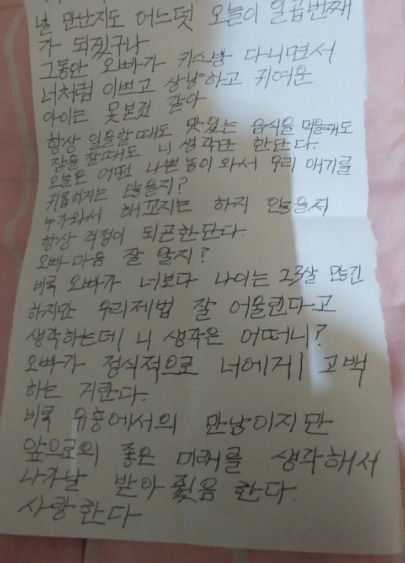 널 만난지도 어느덧 오늘이 일곱번째
가 되겠구나
그동안 오빠가 키스방 다니면서
너처럼 이쁘고 상냥하고 귀여운
아이는 못본것 같아
항상 일을할때도 맛있는 음식을 먹을때도
잠을 잘때도 니 생각만 한단다.
오늘은 어떤 나쁜놈이와서 우리 애기를
괴롭히지는 않을지?
누가와서 해꼬지는 하지 않을지
항상 걱정이 되곤한단다.
오빠마음 잘 알지?
비록 오빠가 너보다 나이는 23살 많긴
하지만 우리제법 잘 어울린다고
생각하는데 니 생각은 어떠니?
오빠가 정식적으로 너에게 고백
하는 거란다.
비록 유흥에서의 만남이지만
앞으로의 좋은 미래를 생각해서
나가날 받아줬음 한다.
사랑한다